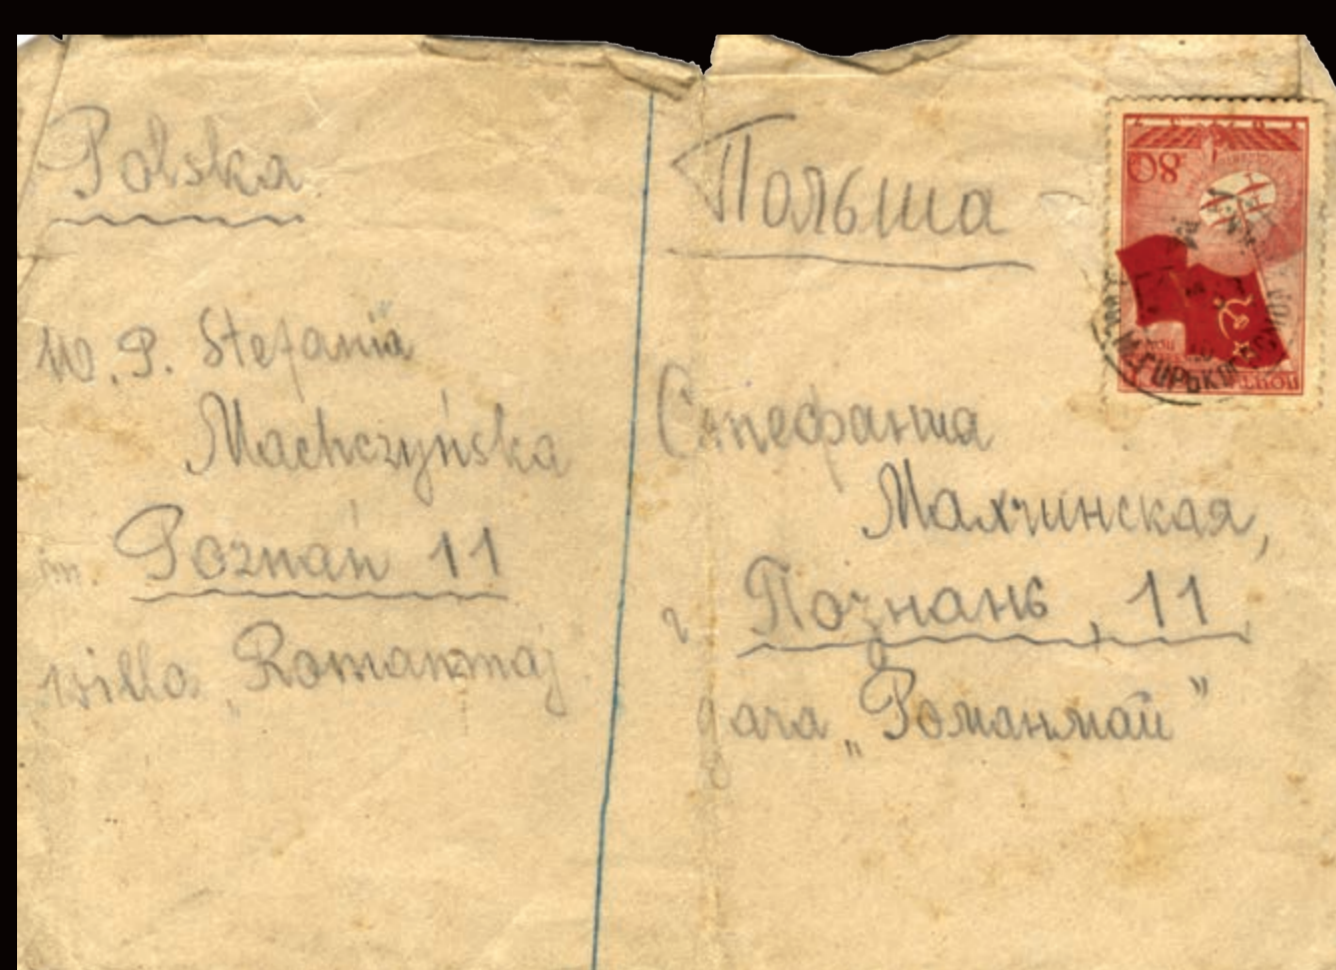 Polska
W. P. Stefania
Machczyńska
m. Poznań 11
willa „Romanmaj
Польша
Стефания
Махчинская,
г Познань, 11
дача „Романмай"
80